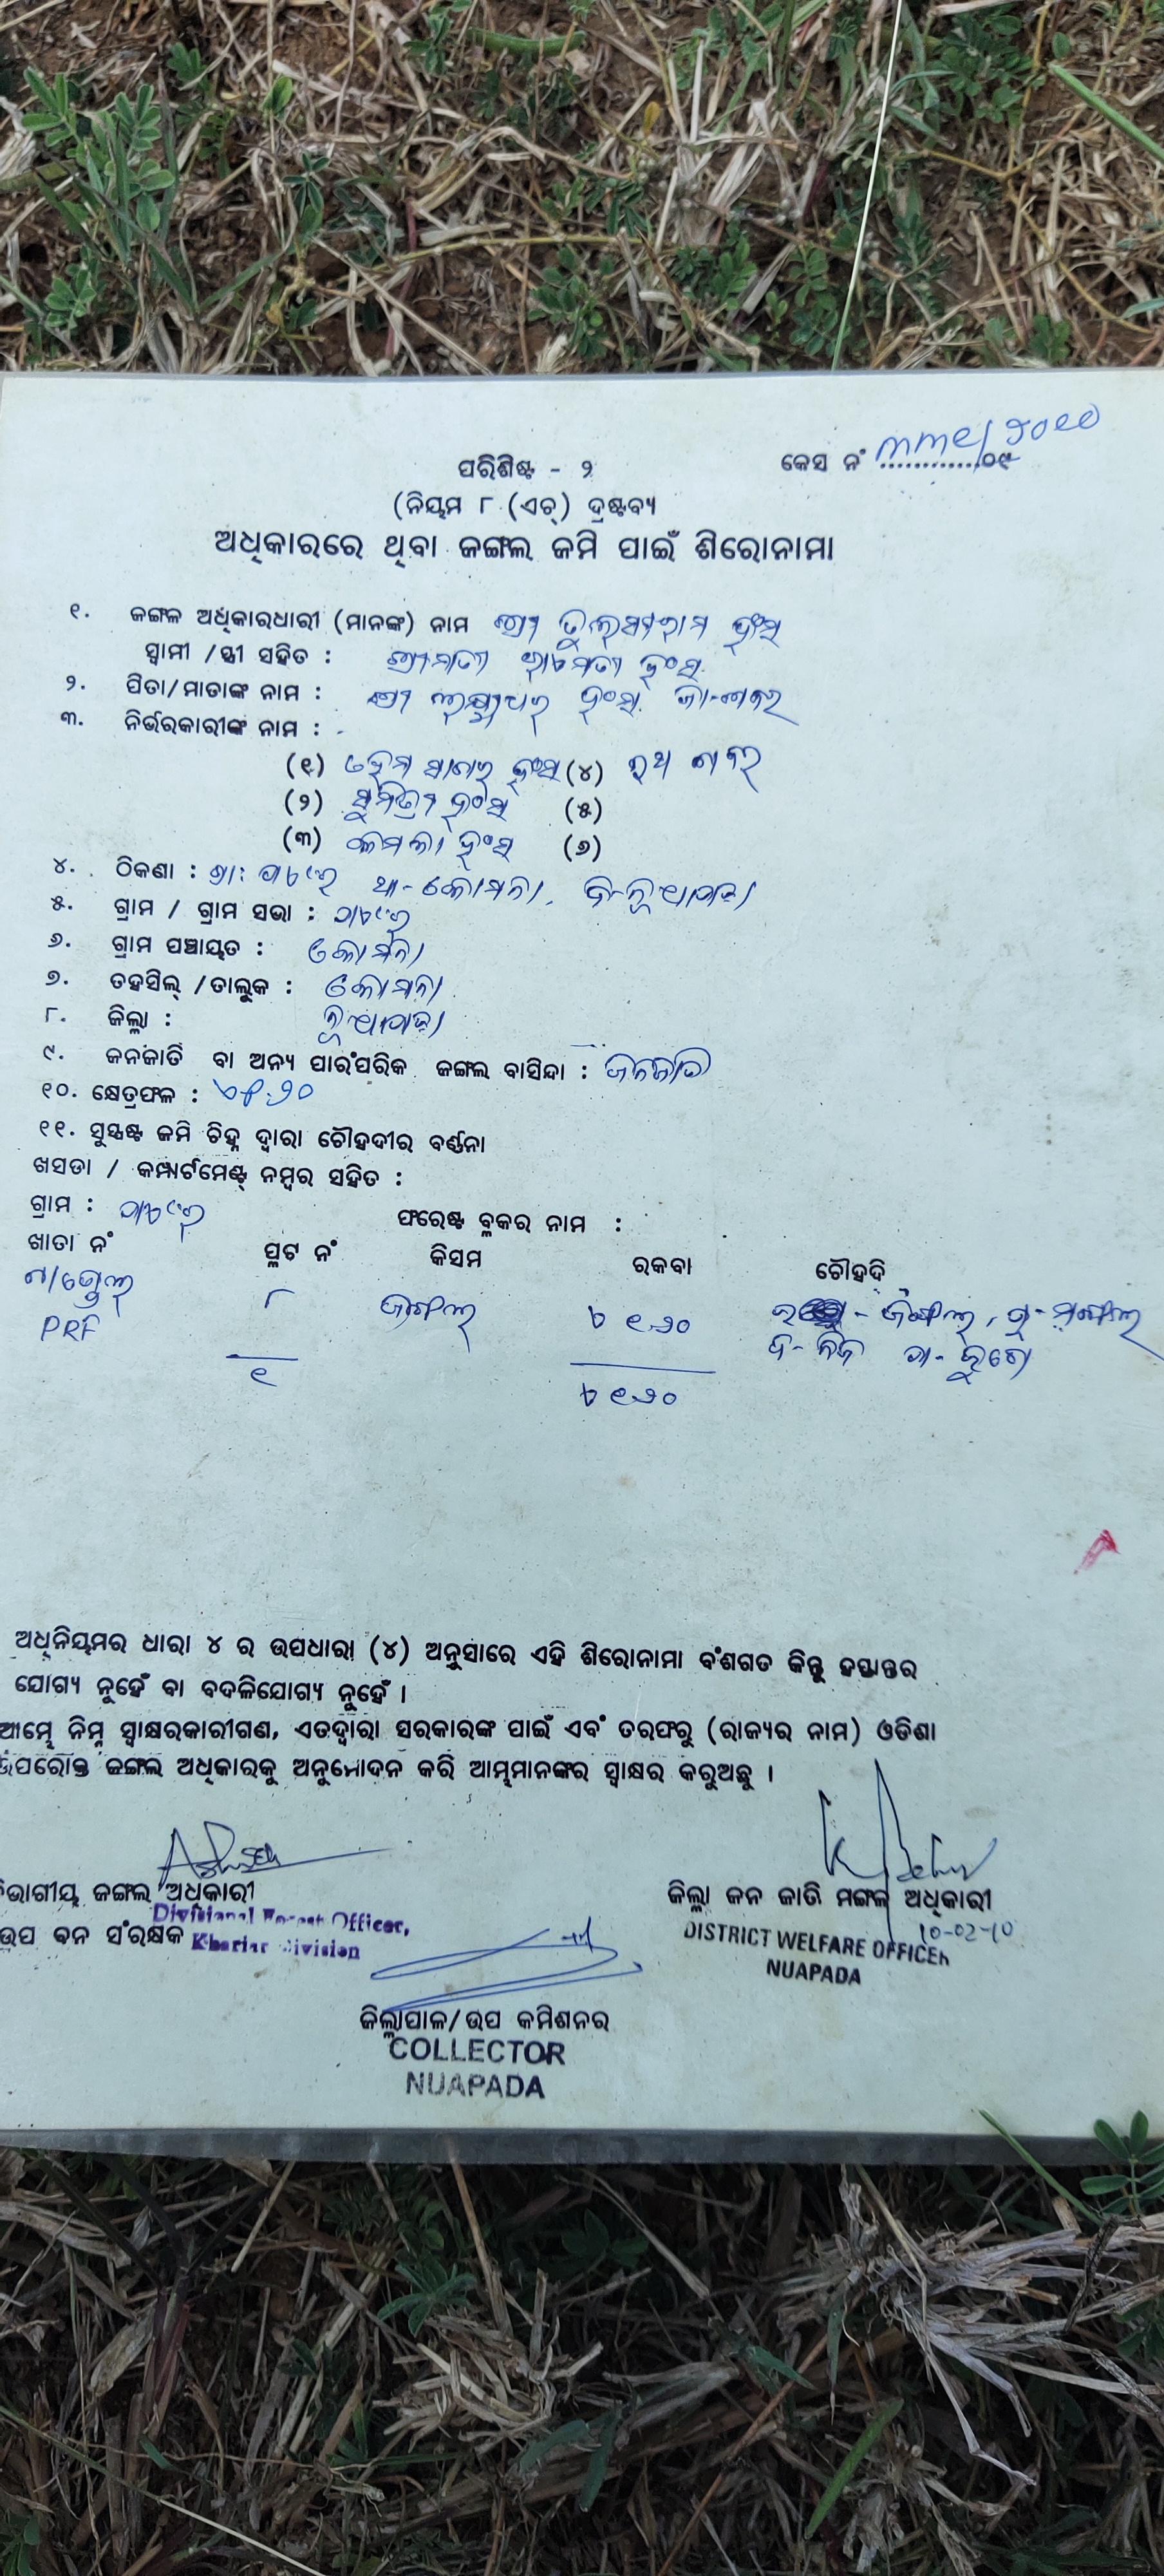 କେସ ନଂ ............୦୯
ପରିଶିଷ୍ଟ - ୨
(ନିୟମ ୮ (ଏଚ୍) ଦ୍ରଷ୍ଟବ୍ୟ
ଅଧିକାରରେ ଥିବା ଜଙ୍ଗଲ ଜମି ପାଇଁ ଶିରୋନାମା
୧. ଜଙ୍ଗଲ ଅଧିକାରଧାରୀ (ମାନଙ୍କ) ନାମ ଶ୍ରୀ ତୁଲସୀରାମ ହଂସ
ସ୍ଵାମୀ /ସ୍ତ୍ରୀ ସହିତ : ଶ୍ରୀମତୀ ହଂସ
୨. ପିତା/ମାତାଙ୍କ ନାମ : ଶ୍ରୀ ହଂସ
୩. ନିର୍ଭରକାରୀଙ୍କ ନାମ :
(୧) ହଂସ (୪)
(୨) ସୁମିତ୍ରା ହଂସ (୫)
(୩) କମଳା ହଂସ (୬)
୪. ଠିକଣା : ଥା- କୋମନା, ଜି-ନୂଆପଡ଼ା
୫. ଗ୍ରାମ / ଗ୍ରାମ ସଭା :
୬. ଗ୍ରାମ ପଞ୍ଚାୟତ : କୋମନା
୭. ତହସିଲ୍ /ତାଲୁକ : କୋମନା
୮. ଜିଲ୍ଲା : ନୂଆପଡ଼ା
୯. ଜନଜାତି ବା ଅନ୍ୟ ପାରଂପରିକ ଜଙ୍ଗଲ ବାସିନ୍ଦା : ଜନଜାତି
୧୦. କ୍ଷେତ୍ରଫଳ :
୧୧. ସୁସ୍ପଷ୍ଟ ଜମି ଚିହ୍ନ ଦ୍ୱାରା ଚୌହଦୀର ବର୍ଣ୍ଣନା
ଖସଡା / କମ୍ପାର୍ଟମେଣ୍ଟ୍ ନମ୍ବର ସହିତ :
ଗ୍ରାମ : ଫରେଷ୍ଟ ବ୍ଲକର ନାମ :
ଖାତା ନଂ ପ୍ଲଟ ନଂ କିସମ ରକବା ଚୌହଦି
୮ ଜଙ୍ଗଲ
PRF
୧
ଅଧିନିୟମର ଧାରା ୪ ର ଉପଧାରା (୪) ଅନୁସାରେ ଏହି ଶିରୋନାମା ବଂଶଗତ କିନ୍ତୁ ହସ୍ତାନ୍ତର
ଯୋଗ୍ୟ ନୁହେଁ ବା ବଦଳିଯୋଗ୍ୟ ନୁହେଁ ।
ଆମ୍ଭେ ନିମ୍ନ ସ୍ୱାକ୍ଷରକାରୀଗଣ, ଏତଦ୍ଦ୍ୱାରା ସରକାରଙ୍କ ପାଇଁ ଏବଂ ତରଫରୁ (ରାଜ୍ୟର ନାମ) ଓଡିଶା
ଉପରୋକ୍ତ ଜଙ୍ଗଲ ଅଧିକାରକୁ ଅନୁମୋଦନ କରି ଆମ୍ଭମାନଙ୍କର ସ୍ୱାକ୍ଷର କରୁଅଛୁ ।
ବିଭାଗୀୟ ଜଙ୍ଗଲ ଅଧିକାରୀ
Divisional Forest Officer,
ଉପ ବନ ସଂରକ୍ଷକ Khariar Division
ଜିଲ୍ଲା ଜନ ଜାତି ମଙ୍ଗଳ ଅଧିକାରୀ
10-02-10
DISTRICT WELFARE OFFICER
NUAPADA
ଜିଲ୍ଲାପାଳ/ଉପ କମିଶନର
COLLECTOR
NUAPADA